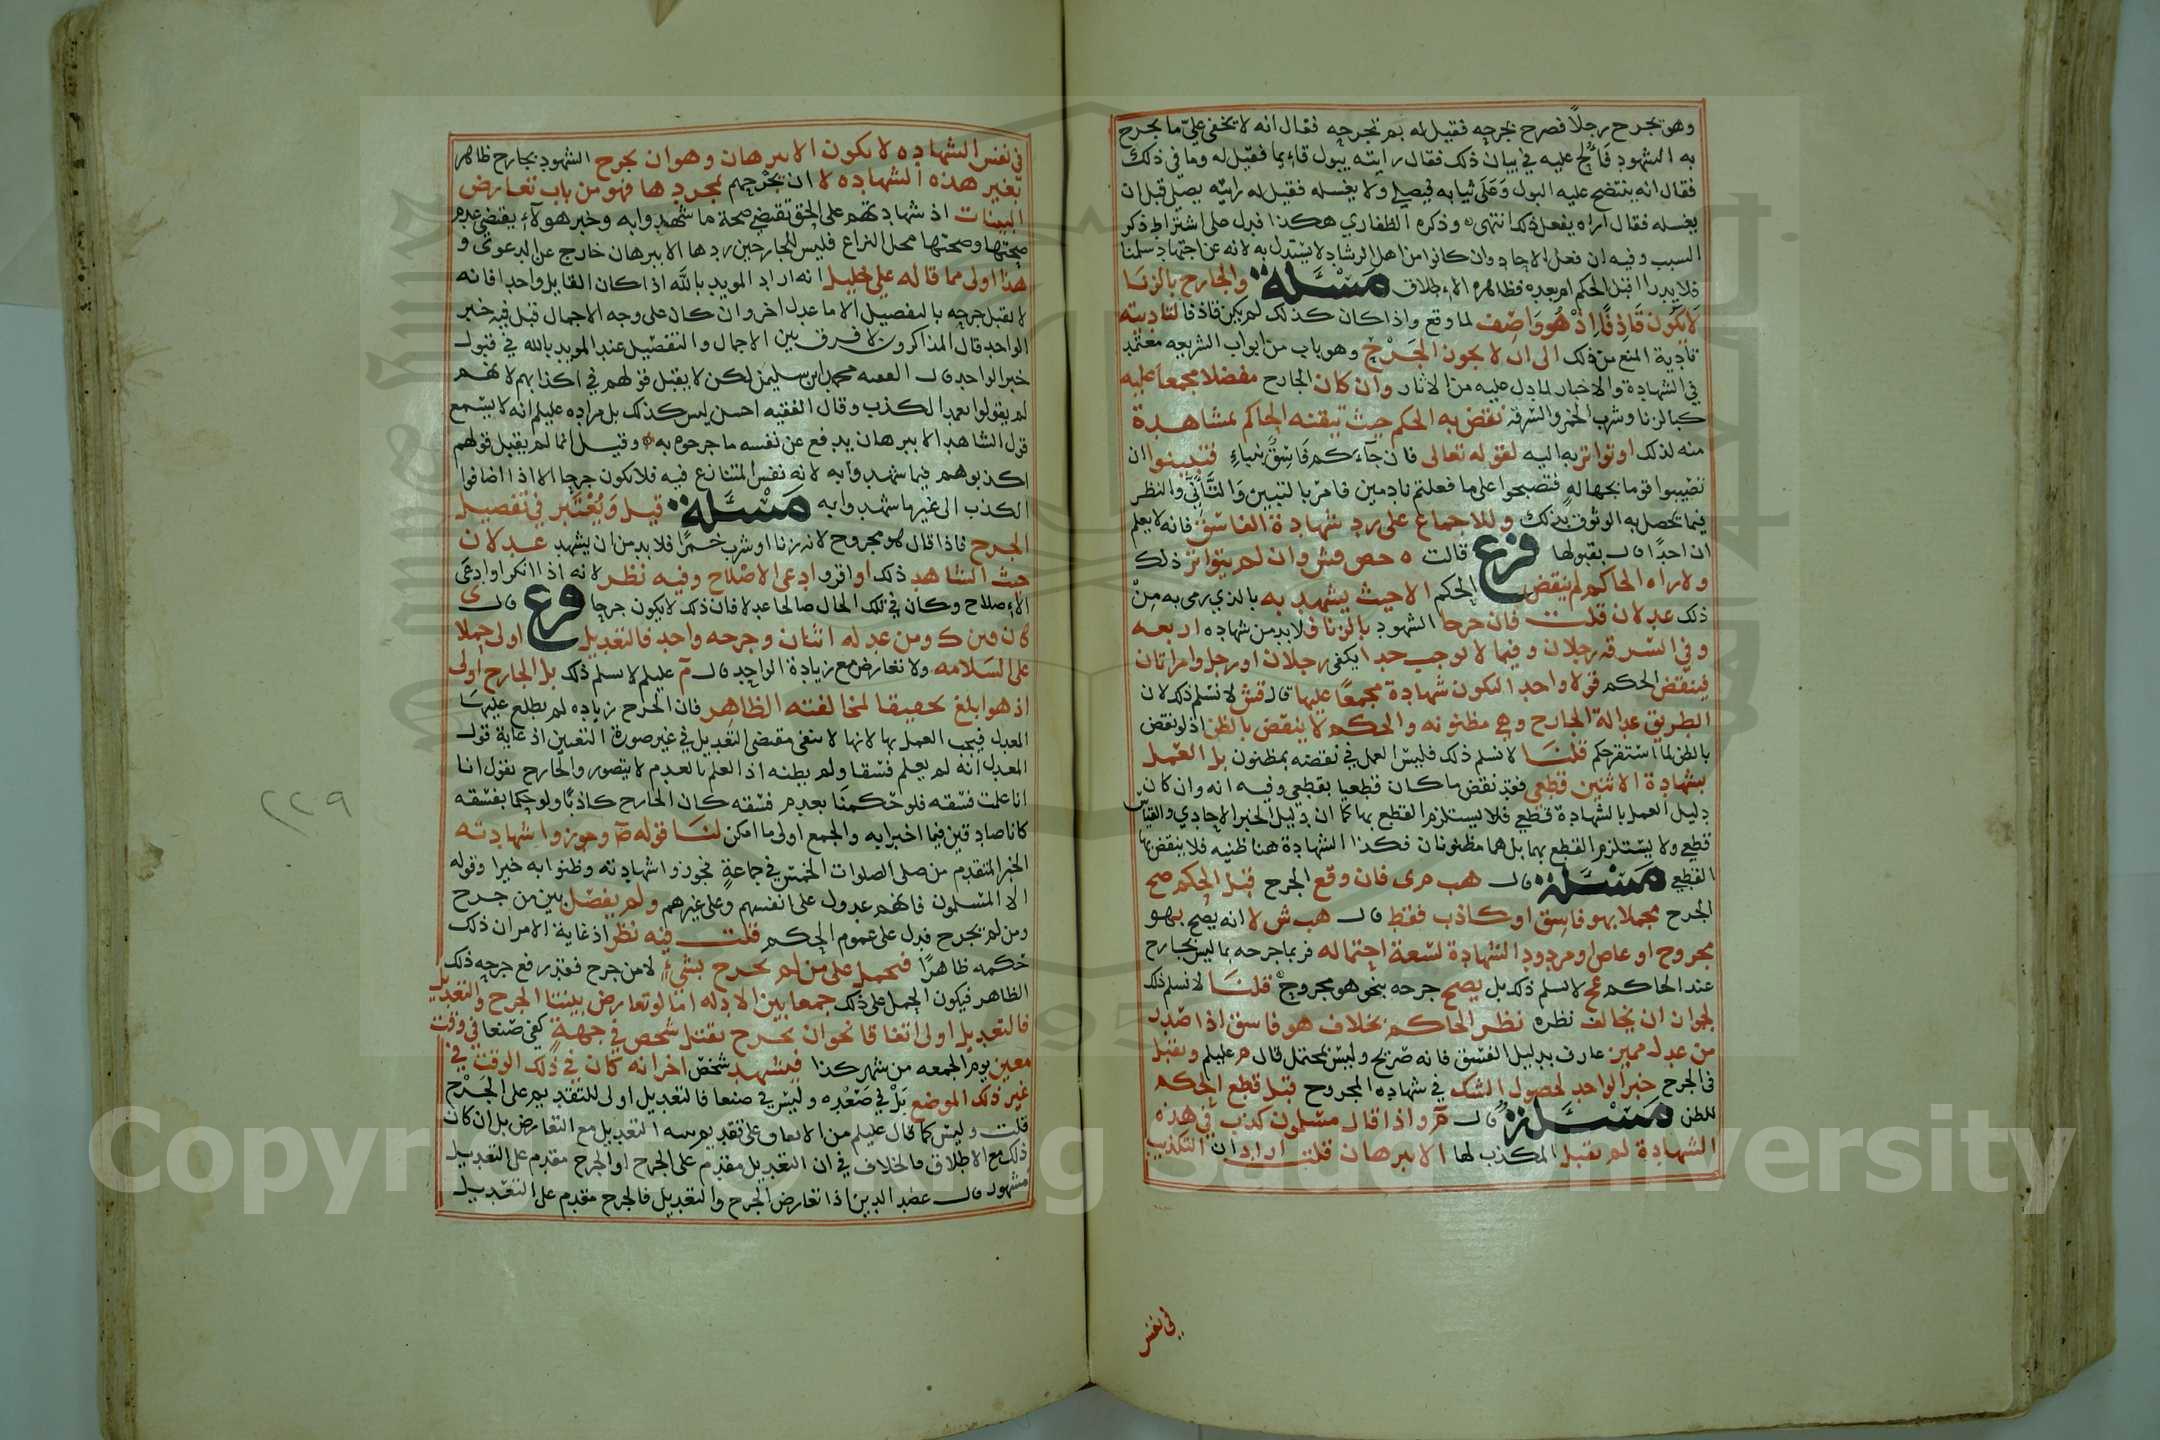 وهو يجرح رجلاً فصرح بجرحه فقيل له بم تجرحه فقال انه لا يخفى عليّ ما يجرح
به الشهود فألح عليه في بيان ذلك فقال رايته يبول قاءيما فقيل له وما في ذلك
فقال انه ينتضح عليه البول وعلى ثيابه فيصلي ولا يغسله فقيل له رايته يصلي قبل ان
يغسله فقال اراه يفعل ذلك انتهى وذكره الظفاري هكذا فدل على اشتراط ذكر
السبب وفيه ان فعل الاحاد وان كانوا من اهل الرشاد لا يستدل به لانه عن اجتهاد سلمنا
فلا يدرا اقبل الحكم ام بعده فظاهره الاطلاق مسئلة والجارح بالزنا
لا يكون قاذفا اذ هو واصف لما وقع واذا كان كذلك لم يكن قاذفا لتاديته
تادية المنع من ذلك الى ان لا يجوز الجرح وهو باب من ابواب الشريعه معتمد
في الشهادة والاخبار لما دل عليه من الاثار وان كان الجارح مفصلا مجمعا عليه
كالزنا وشرب الخمر والسرقه نقض به الحكم حيث تيقنه الحاكم بمشاهدة
منه لذلك او تواتر به اليه لقوله تعالى فان جآءكم فاسق بنباءٍ فتبينوا ان
تصيبوا قوما بجهالة فتصبحوا على ما فعلتم نادمين فامر بالتبين والتأني والنظر
فيما يحصل به الوثوق بذلك وللاجماع على رد شهادة الفاسق فانه لا يعلم
ان احدًا قال بقبولها فرع قالت ه حص فش وان لم يتواتر ذلك
ولا راه الحاكم لم ينقض الحكم الا حيث يشهد به بالذي رمى به من
ذلك عدلان قلت فان جرحا الشهود بالزنا فلا بد من شهاده اربعه
وفي السرقه رجلان وفيما لا يوجب حدا يكفي رجلان او رجل وامراتان
فينقض الحكم قولا واحدا لتكون شهادة مجمعا عليها قال قش لا نسلم ذلك لان
الطريق عدالة الجارح وهي مظنونه والحكم لا ينقض بالظن اذ لو نقض
بالظن لما استقر حكم قلنا لا نسلم ذلك فليس العمل في نقضه بمظنون بل العمل
بشهادة الاثنين قطعي فقد نقض ما كان قطعيا بقطعي وفيه انه وان كان
دليل العمل بالشهادة قطعي فلا يستلزم القطع بها كما ان دليل الخبر الاحادي والقياس
قطعي ولا يستلزم القطع بهما بل هما مظنونان فكذا الشهادة هنا ظنيه فلا ينقض بها
القطعي مسئلة قال هب مرى فان وقع الجرح قبل الحكم صح
الجرح مجملا بهو فاسق او كاذب فقط قال هب ش لا انه يصح بهو
مجروح او عاص او مردود الشهادة لسعة احتماله فربما جرحه بما ليس بجارح
عند الحاكم مح لا نسلم ذلك بل يصح جرحه بنحو هو مجروح قلنا لا نسلم ذلك
لجواز ان يخالف نظره نظر الحاكم بخلاف هو فاسق اذا صدر
من عدل مميز عارف بدليل الفسق فانه صريح وليس بمحتمل قال م عليلم ويقبل
في الجرح خبر الواحد لحصول الشك في شهاده المجروح قبل قطع الحكم
للظن مسئلة قال م واذا قال مسلمون كذب في هذه
الشهادة لم يقبل المكذب لها الا ببرهان قلت اراد ان التكذيب
في نفس
في نفس الشهاده لا يكون الا ببرهان وهو ان يجرح الشهود بجارح ظاهر
بغير هذه الشهاده لا ان يجرحهم بمجردها فهو من باب تعارض
البينات اذ شهادتهم على الحق تقتضي صحة ما شهدوا به وخبر هولاء يقتضي عدم
صحتها وصحتها محل النزاع فليس للجارحين ردها الا ببرهان خارج عن الدعوى و
هذا اولى مما قاله علي خليل انه اراد المويد بالله اذا كان القايل واحدا فانه
لا يقبل جرحه بالتفصيل الا مع عدل اخر وان كان على وجه الاجمال قبل فيه خبر
الواحد قال المذاكرون لا فرق بين الاجمال والتفصيل عند المويد بالله في قبول
خبر الواحد قال الفقيه محمد ابن سليمن لكن لا يقبل قولهم في اكذابهم لانهم
لم يقولوا بعمد الكذب وقال الفقيه احسن ليس كذلك بل مراده عليلم انه لا يسمع
قول الشاهد الا ببرهان يدفع عن نفسه ما جرحوه به وقيل انما لم يقبل قولهم
اكذبوهم فيما شهدوا به لانه نفس المتنازع فيه فلا يكون جرحا الا اذا اضافوا
الكذب الى غير ما شهدوا به مسئلة قيل ويعتبر في تفصيل
الجرح فاذا قال هو مجروح لانه زنا او شرب خمرا فلا بد من ان يشهد عدلان
حيث الشاهد ذلك او اقر وادعى الاصلاح وفيه نظر لانه اذا انكر او ادعى
الاصلاح وكان في تلك الحال صالحا عدلا فان ذلك لا يكون جرحا فرع قال ى
كان فين ك ومن عدله اثنان وجرحه واحد فالتعديل اولى حملا
على السلامه ولا تعارض مع زيادة الواحد قال م عليلم لا نسلم ذلك بل الجارح اولى
اذ هو ابلغ تحقيقا لمخالفته الظاهر فان الجرح زياده لم يطلع عليها
المعدل فيجب العمل بها لانها لا تنفي مقتضى التعديل في غير صورة التعيين اذ غاية قول
المعدل انه لم يعلم فسقا ولم يظنه اذ العلم بالعدم لا يتصور والجارح يقول انا
انا علمت فسقه فلو حكمنا بعدم فسقه كان الجارح كاذبًا ولو حكما بفسقه
كانا صادقين فيما اخبرا به والجمع اولى ما امكن لنا قوله ص وجوزوا شهادته
الخبر المتقدم من صلى الصلوات الخمس في جماعةٍ فجوزوا شهادته وظنوا به خيرا وقوله
الا المسلمون فانهم عدول على انفسهم وعلى غيرهم ولم يفصل بين من جرح
ومن لم يجرح فدل على عموم الحكم قلت فيه نظر اذ غاية الامر ان ذلك
حكمه ظاهرًا فيحمل على من لم يجرح بشيءٍ لا من جرح فقد رفع جرحه ذلك
الظاهر فيكون الحمل على ذلك جمعا بين الادله اما لو تعارض بينتا الجرح والتعديل
فالتعديل اولى اتفاقا نحو ان يجرح بقتل شخص في جهةٍ كفي صنعا في وقت
معين يوم الجمعه من شهر كذا فيشهد شخص اخر انه كان في ذلك الوقت في
غير ذلك الموضع بل في صعده وليس في صنعا فالتعديل اولى للتقديم على الجرح
قلت وليس كما قال عليلم من الاتفاق على تقديم بينه التعديل مع التعارض بل ان كان
ذلك مع الاطلاق فالخلاف في ان التعديل مقدم على الجرح او الجرح مقدم على التعديل
مشهور قال عضد الدين اذا تعارض الجرح والتعديل فالجرح مقدم على التعديل
٢٢٩
Copyright © King Saud University
1957